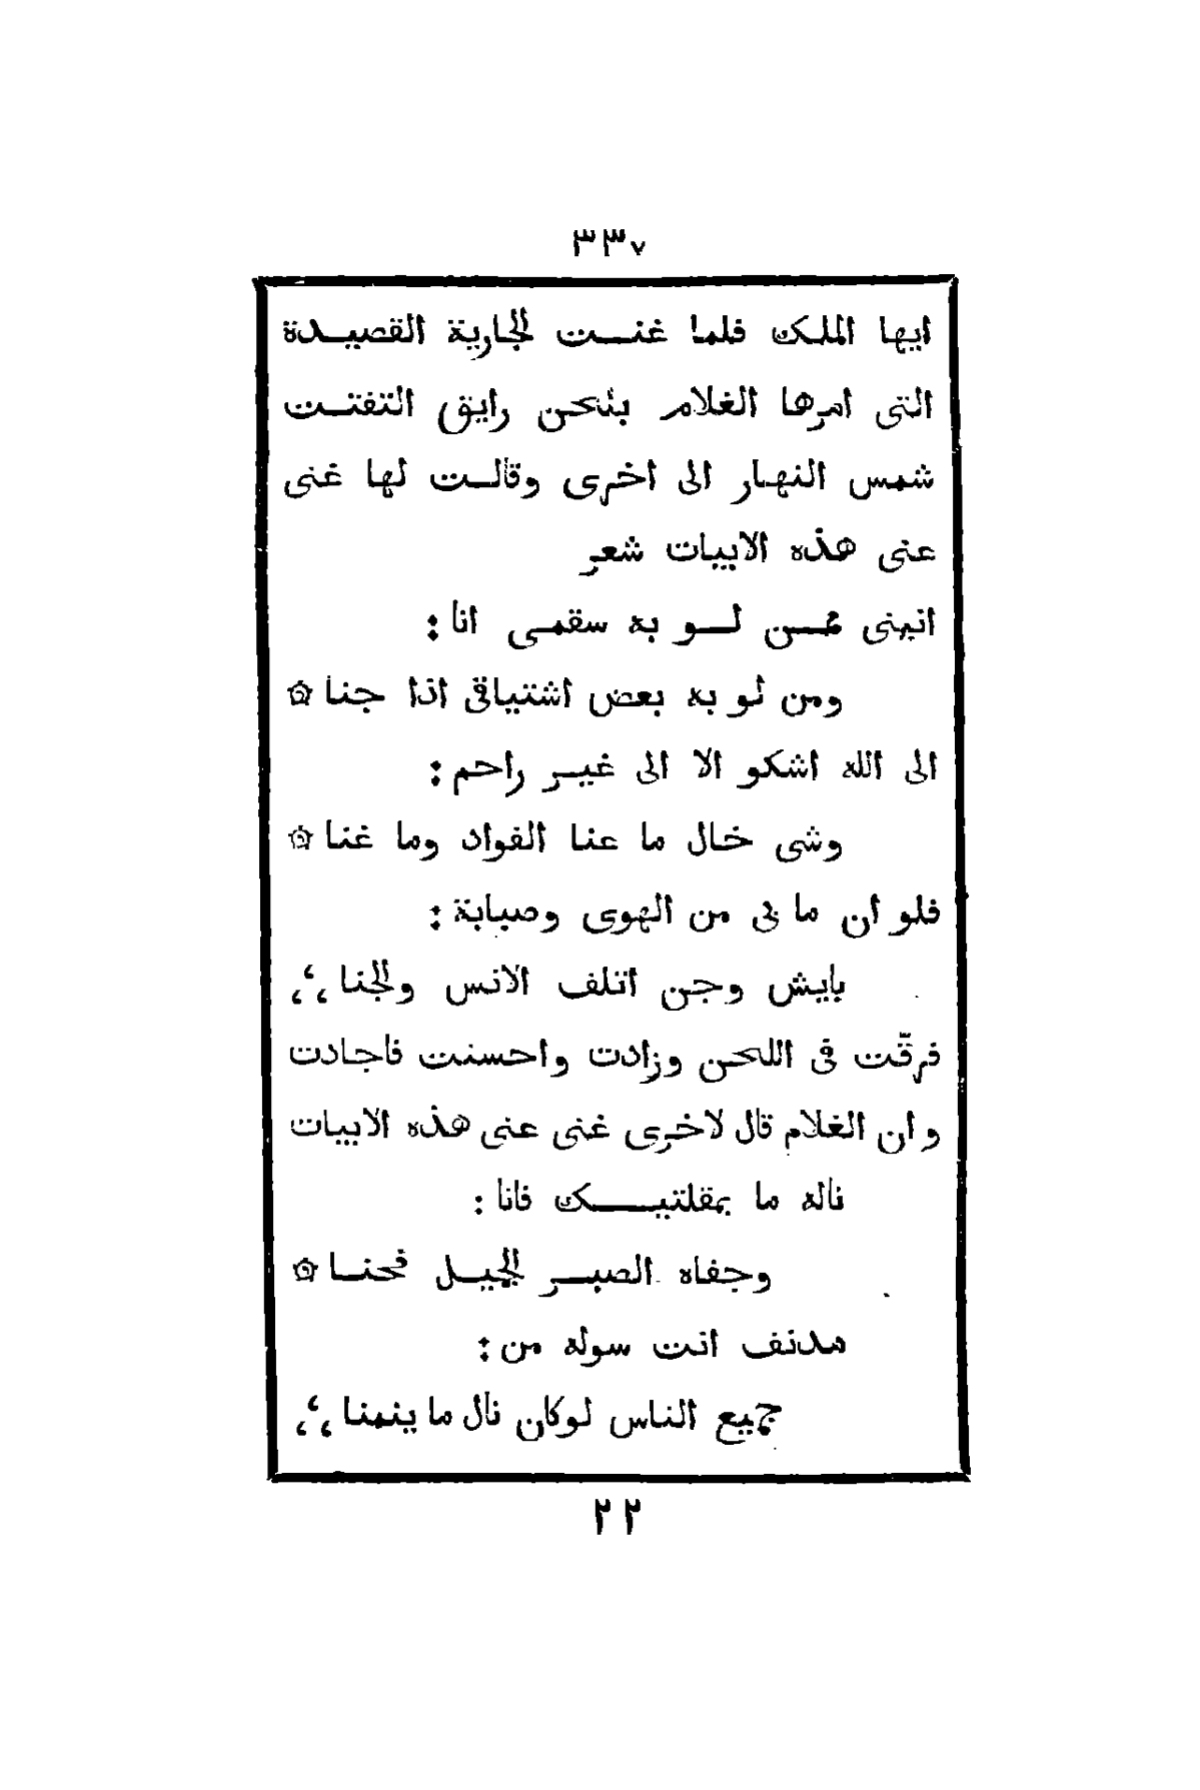 ٣٣٧
ايها الملك فلما غنت الجارية القصيدة
التى امرها الغلام بلحن رايق التفتت
شمس النهار الى اخرى وقالت لها غنى
عنى هذه الابيات شعر
انبنى ممن لو به سقمى انا :
ومن لو به بعض اشتياقى اذا جنا ۞
الى الله اشكو الا الى غير راحم :
وشى خال ما عنا الفواد وما غنا ۞
فلو ان ما بى من الهوى وصبابة :
بايش وجن اتلف الانس والجنا ،٬،
فرقّت فى اللحن وزادت واحسنت فاجادت
وان الغلام قال لاخرى غنى عنى هذه الابيات
ناله ما بمقلتيك فانا :
وجفاه الصبر الجميل فحنا ۞
مدنف انت سوله من :
جميع الناس لوكان نال ما يتمنا ،٬،
٢٢